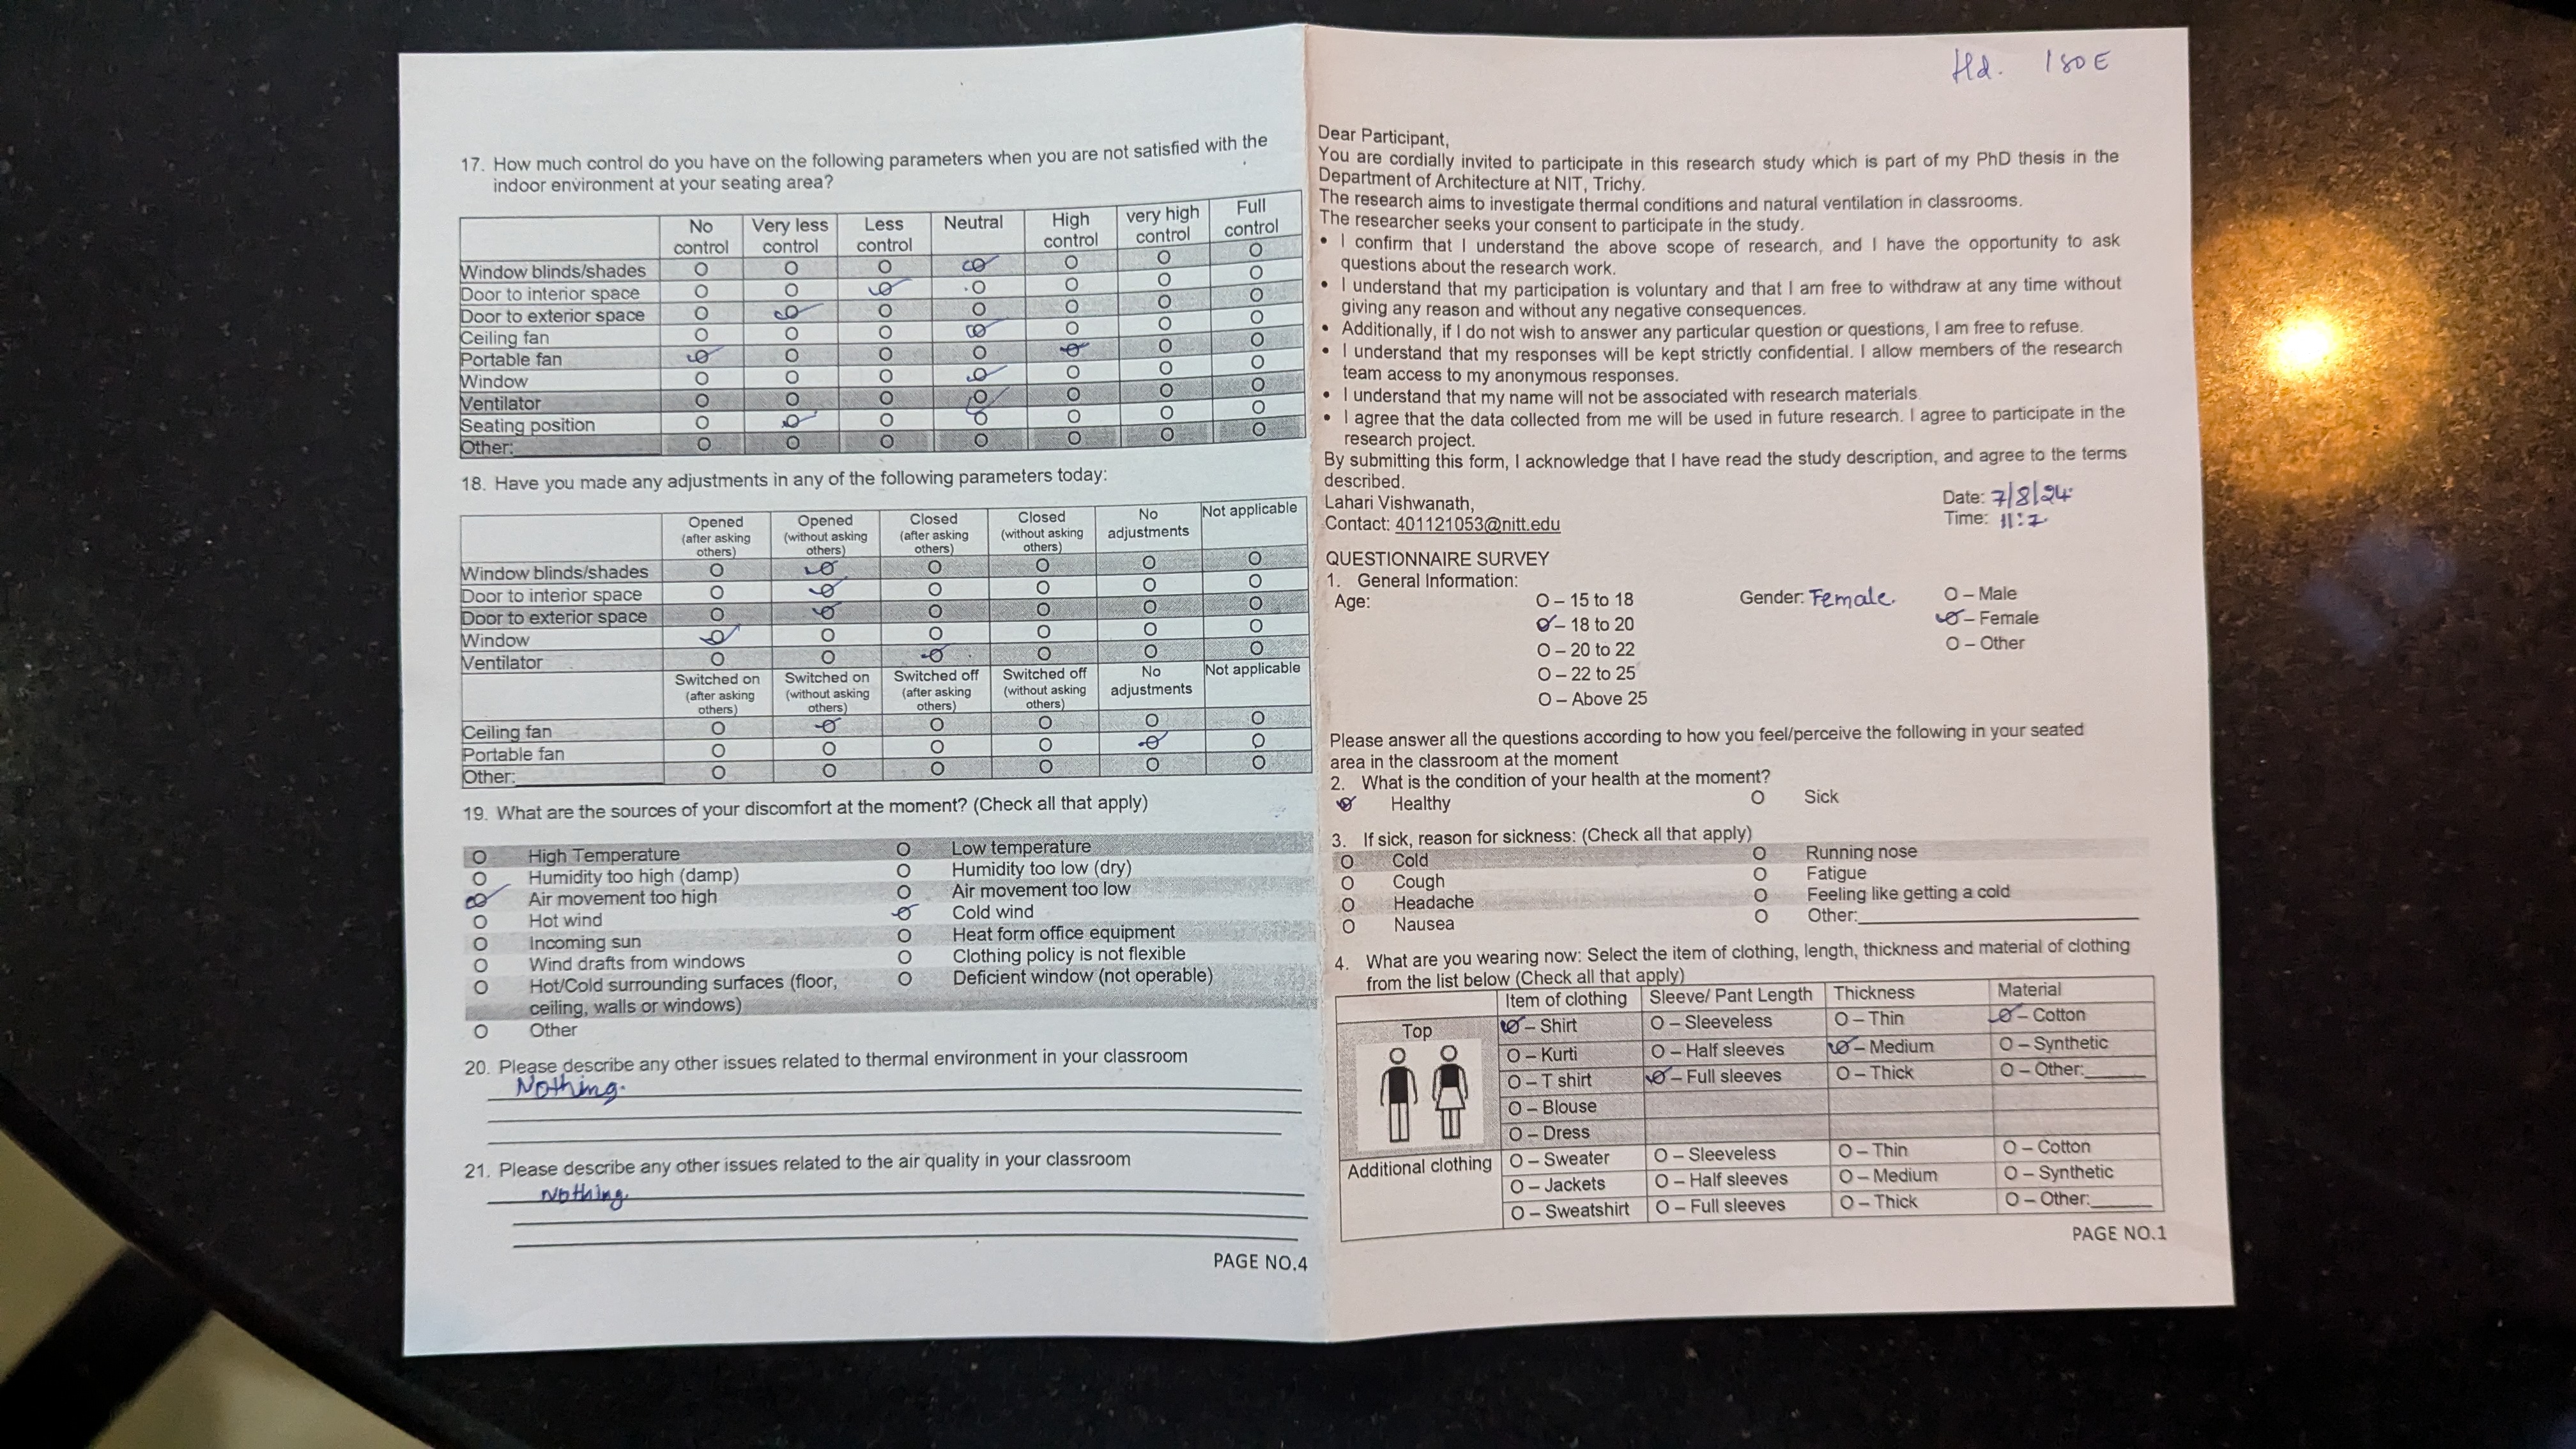 17. How much control do you have on the following parameters when you are not satisfied with the
indoor environment at your seating area?
No control Very less control Less control Neutral High control very high control Full control
Window blinds/shades O O O O O O O
Door to interior space O O O O O O O
Door to exterior space O O O O O O O
Ceiling fan O O O O O O O
Portable fan O O O O O O O
Window O O O O O O O
Ventilator O O O O O O O
Seating position O O O O O O O
Other: O O O O O O O
18. Have you made any adjustments in any of the following parameters today:
Opened (after asking others) Opened (without asking others) Closed (after asking others) Closed (without asking others) No adjustments Not applicable
Window blinds/shades O O O O O O
Door to interior space O O O O O O
Door to exterior space O O O O O O
Window O O O O O O
Ventilator O O O O O O
Switched on (after asking others) Switched on (without asking others) Switched off (after asking others) Switched off (without asking others) No adjustments Not applicable
Ceiling fan O O O O O O
Portable fan O O O O O O
Other: O O O O O O
19. What are the sources of your discomfort at the moment? (Check all that apply)
O High Temperature O Low temperature
O Humidity too high (damp) O Humidity too low (dry)
O Air movement too high O Air movement too low
O Hot wind O Cold wind
O Incoming sun O Heat form office equipment
O Wind drafts from windows O Clothing policy is not flexible
O Hot/Cold surrounding surfaces (floor, O Deficient window (not operable)
ceiling, walls or windows)
O Other
20. Please describe any other issues related to thermal environment in your classroom
Nothing.
21. Please describe any other issues related to the air quality in your classroom
Nothing.
PAGE NO.4
Dear Participant,
You are cordially invited to participate in this research study which is part of my PhD thesis in the
Department of Architecture at NIT, Trichy.
The research aims to investigate thermal conditions and natural ventilation in classrooms.
The researcher seeks your consent to participate in the study.
• I confirm that I understand the above scope of research, and I have the opportunity to ask
questions about the research work.
• I understand that my participation is voluntary and that I am free to withdraw at any time without
giving any reason and without any negative consequences.
• Additionally, if I do not wish to answer any particular question or questions, I am free to refuse.
• I understand that my responses will be kept strictly confidential. I allow members of the research
team access to my anonymous responses.
• I understand that my name will not be associated with research materials
• I agree that the data collected from me will be used in future research. I agree to participate in the
research project.
By submitting this form, I acknowledge that I have read the study description, and agree to the terms
described.
Lahari Vishwanath,
Contact: 401121053@nitt.edu
Date: 7/8/24
Time:
QUESTIONNAIRE SURVEY
1. General Information:
Age: O – 15 to 18 Gender: Female. O – Male
O – 18 to 20 O – Female
O – 20 to 22 O – Other
O – 22 to 25
O – Above 25
Please answer all the questions according to how you feel/perceive the following in your seated
area in the classroom at the moment
2. What is the condition of your health at the moment?
O Healthy O Sick
3. If sick, reason for sickness: (Check all that apply)
O Cold O Running nose
O Cough O Fatigue
O Headache O Feeling like getting a cold
O Nausea O Other:
4. What are you wearing now: Select the item of clothing, length, thickness and material of clothing
from the list below (Check all that apply)
Item of clothing Sleeve/ Pant Length Thickness Material
Top O – Shirt O – Sleeveless O – Thin O – Cotton
O – Kurti O – Half sleeves O – Medium O – Synthetic
O – T shirt O – Full sleeves O – Thick O – Other:
O – Blouse
O – Dress
Additional clothing O – Sweater O – Sleeveless O – Thin O – Cotton
O – Jackets O – Half sleeves O – Medium O – Synthetic
O – Sweatshirt O – Full sleeves O – Thick O – Other:
PAGE NO.1